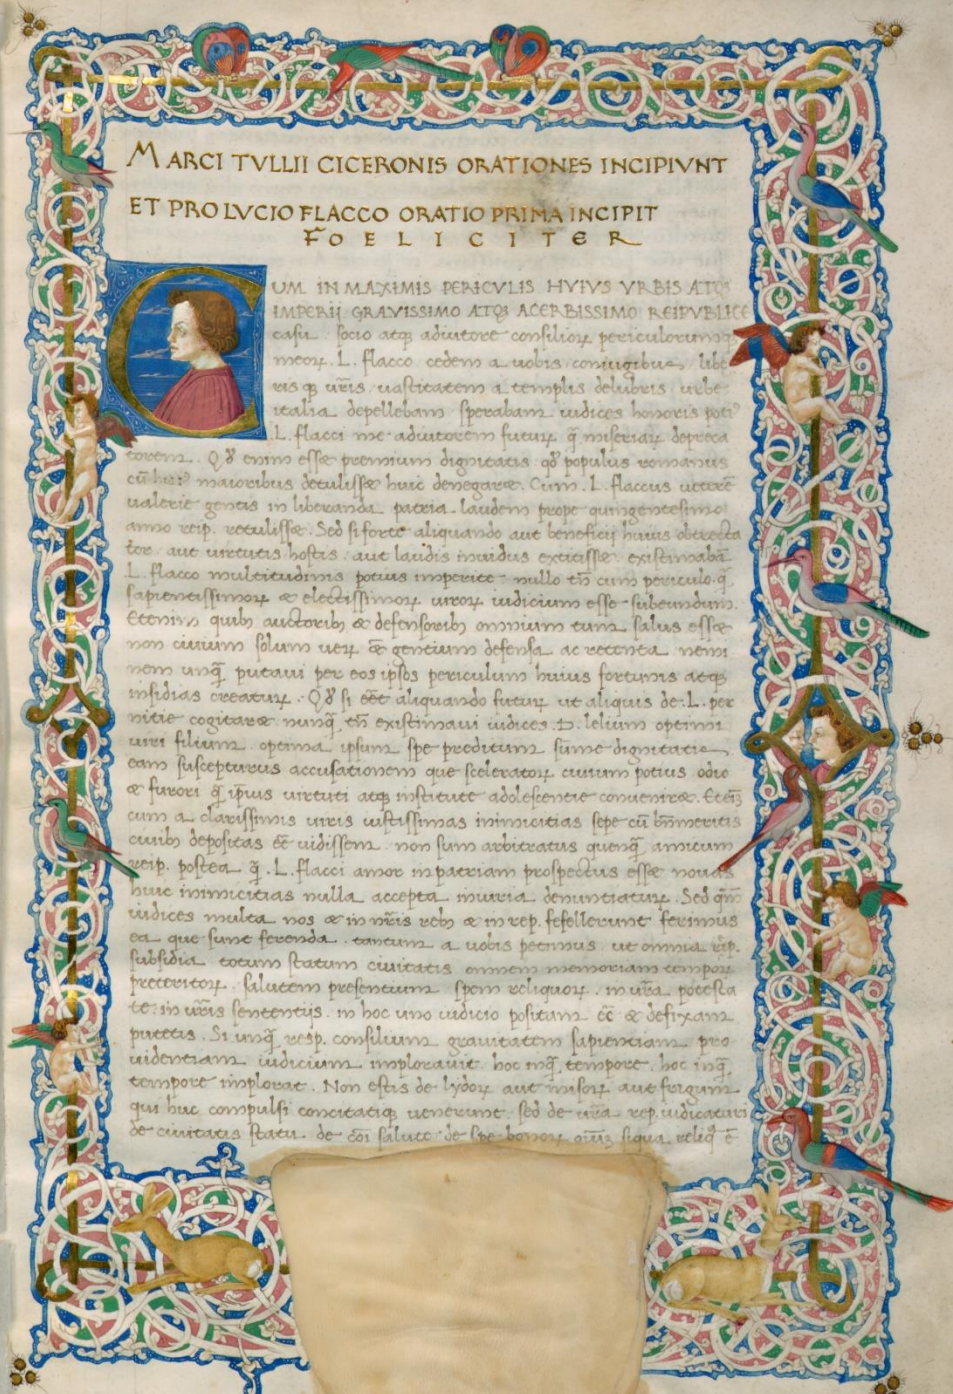 MARCI TVLLII CICERONIS ORATIONES INCIPIVNT
ET PRO LVCIO FLACCO ORATIO PRIMA INCIPIT
FOELICITER
CUM IN MAXIMIS PERICVLIS HVIVS VRBIS ATQꝫ
IMPERII GRAVISSIMO ATQꝫ ACERBISSIMO REIPVBLICE
casu . socio atqꝫ adiutore consilioꝝ periculorumqꝫ
meoꝝ . L . flacco cedem a uobis coniugibus libe
risqꝫ ur̃is uastitatem a templis delubris urbe
italia depellebam sperabam iudices honoris poti⁹
.L. flacci me adiutorem futuꝝ q̃ miseriaꝝ depreca
torem . Qd̕ enim esse premium dignitatis qd̕ populus romanus
cũ maioribus detulisse huic denegare . Cum . L . flaccus ueterẽ
ualerie gentis in liberanda patria laudem prope quingentesimo
anno reip. retulisse . Sed si forte aliquando aut beneficii huius obtrecta
tor . aut uirtutis hostis . aut laudis inuidus extitisse existimabã
.L. flacco multitudinis potius imperite nullo tñ cum periculo . q̃
sapientissimoꝝ & electissimoꝝ uiroꝝ iudicium esse subeundum .
Etenim quibꝫ auctoribꝫ & defensoribꝫ omnium tum salus esse
non ciuium solum ueꝝ & gentium defensa ac retenta nemi
nem unq̃ putaui per eos ipsos periculum huius fortunis atqꝫ
insidias creatuꝝ . Qd̕ si eẽt aliquando futuꝝ ut aliquis de . L . per
nitie cogitare nunq̃ tñ existimaui iudices . D . lelium optimi
uiri filium . optima ipsum spe preditum sume dignitatis
eam suscepturus accusationem que sceleratoꝝ ciuium potius odio
& furori q̃ ip̃ius uirtuti atqꝫ institute adolescentie conuenire . Eteĩꝫ
cum a clarissimis uiris iustissimas inimicitias sepe cũ bñmeritis
ciuibꝫ depositas eẽ uidissem . non sum arbitratus quenq̃ amicum
reip. postea q̃ . L . flacci amor in patriam prospectus esse nouas
huic inimicitias nulla accepta iniuria denuntiatuꝝ . Sed qm̃
iudices multa nos & in nr̃is rebꝫ & in rep. fefellerunt ferimus
ea que sunt ferenda . tantum a uobis petimus ut omnia rẽip.
subsidia totum statum ciuitatis omnem memoriam tempoꝝ
preteritoꝝ . salutem presentium spem reliquoꝝ . in ur̃a potesta
te : in ur̃is sententijs . in hoc uno iudicio positam eẽ & defixam
putetis . Si unq̃ resp. consilium grauitatem sapientiam pro
uidentiam iudicium implorauit hoc inq̃ . tempore . hoc inq̃
tempore implorat . Non estis de lydoꝝ aut misoꝝ aut frigum
qui huc compulsi concitatiqꝫ uenerunt . sed de ur̃a rep. iudicaturi
de ciuitatis statu de cõi salute de spe bonoꝝ oĩuꝫ siqua reliq̃ ẽ